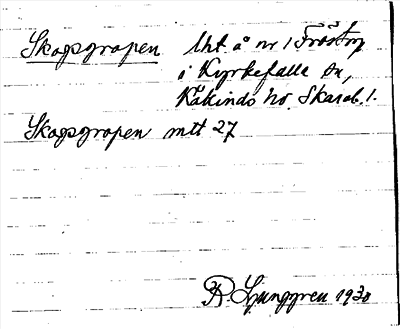 Skogsgropen Uht. å nr 1 Fröstorp
i Kyrkefalla sn,
Kåkinds hd. Skarab. l.
Skogsgropen mtt 27
R Ljunggren 1930